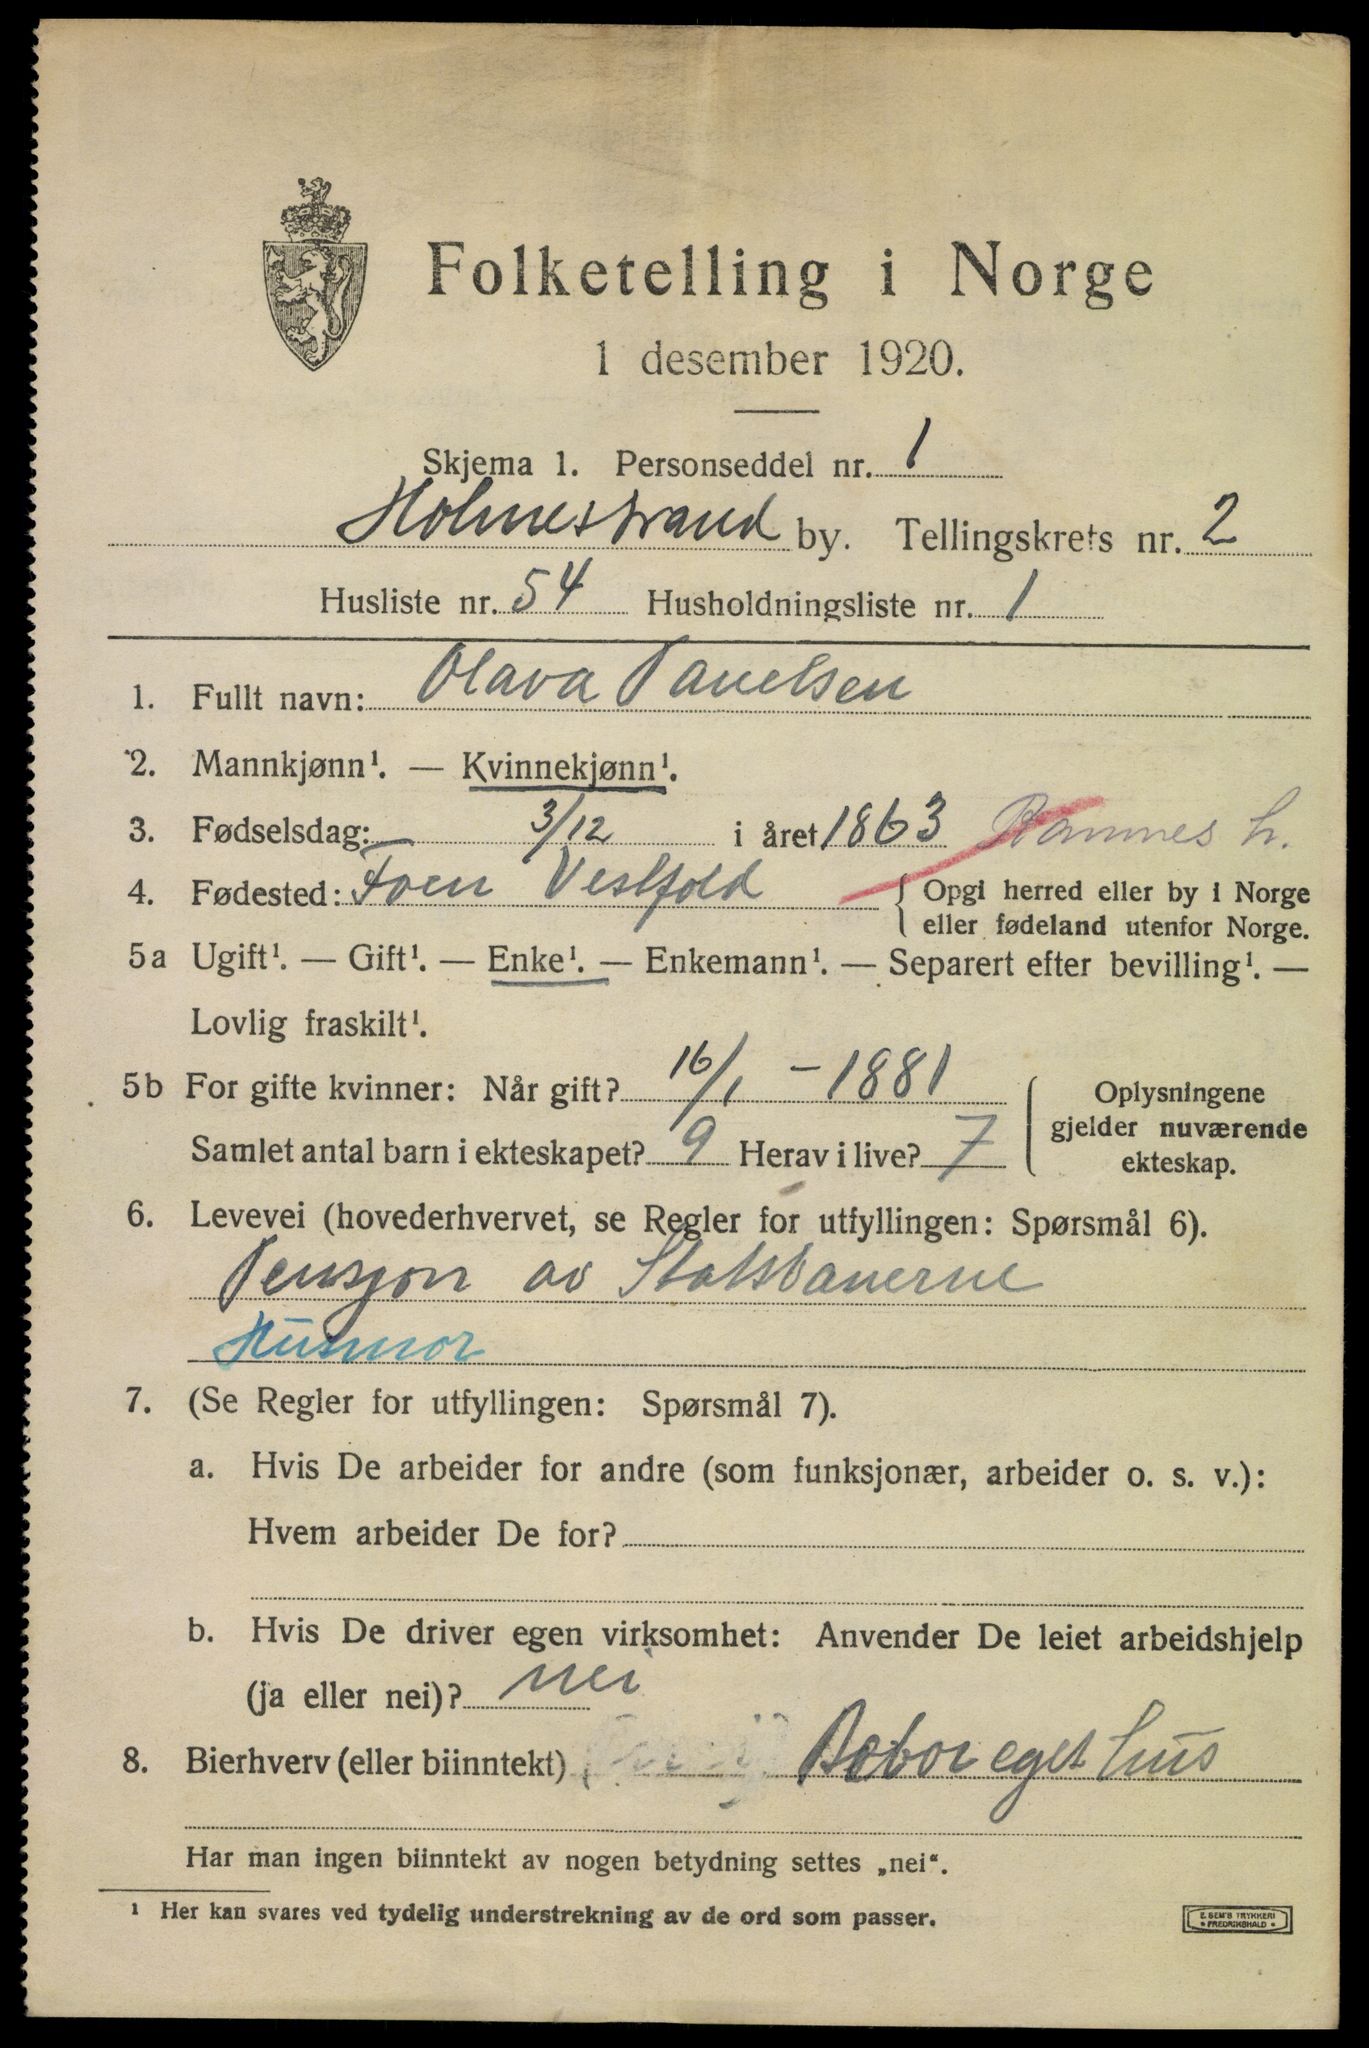 Folketelling i Norge
1 desember 1920.
Skjema 1. Personseddel nr. 1
Holmestrand by. Tellingskrets nr. 2
Husliste nr. 54 Husholdningsliste nr. 1
1. Fullt navn: Olava Pauelsen
2. Mannkjønn¹. — Kvinnekjønn¹.
3. Fødselsdag: 3/12 i året 1863 Ramnes h.
4. Fødested: Foen Vestfold { Opgi herred eller by i Norge
eller fødeland utenfor Norge.
5a Ugift¹. — Gift¹. — Enke¹. — Enkemann¹. — Separert efter bevilling¹. —
Lovlig fraskilt¹.
5b For gifte kvinner: Når gift? 16/1 - 1881 Oplysningene
Samlet antal barn i ekteskapet? 9 Herav i live? 7 gjelder nuværende
ekteskap.
6. Levevei (hovederhvervet, se Regler for utfyllingen: Spørsmål 6).
Pensjon av Statsbanerne
Husmor
7. (Se Regler for utfyllingen: Spørsmål 7).
a. Hvis De arbeider for andre (som funksjonær, arbeider o. s. v.):
Hvem arbeider De for?
b. Hvis De driver egen virksomhet: Anvender De leiet arbeidshjelp
(ja eller nei)? nei
8. Bierhverv (eller biinntekt) eget hus
Har man ingen biinntekt av nogen betydning settes „nei“.
¹ Her kan svares ved tydelig understrekning av de ord som passer.
E. SEM'S TRYKKERI
FREDRIKSHALD